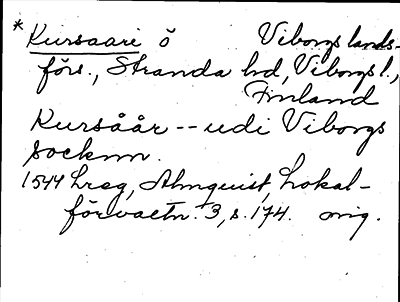 * Kursaari ö Viborgs lands-
förs., Stranda hd, Viborgs l.,
Finland
Kursåår -- udi Viborgs
socknn.
1544 Lreg, Almquist, Lokal-
förvaltn. 3, s. 174. orig.